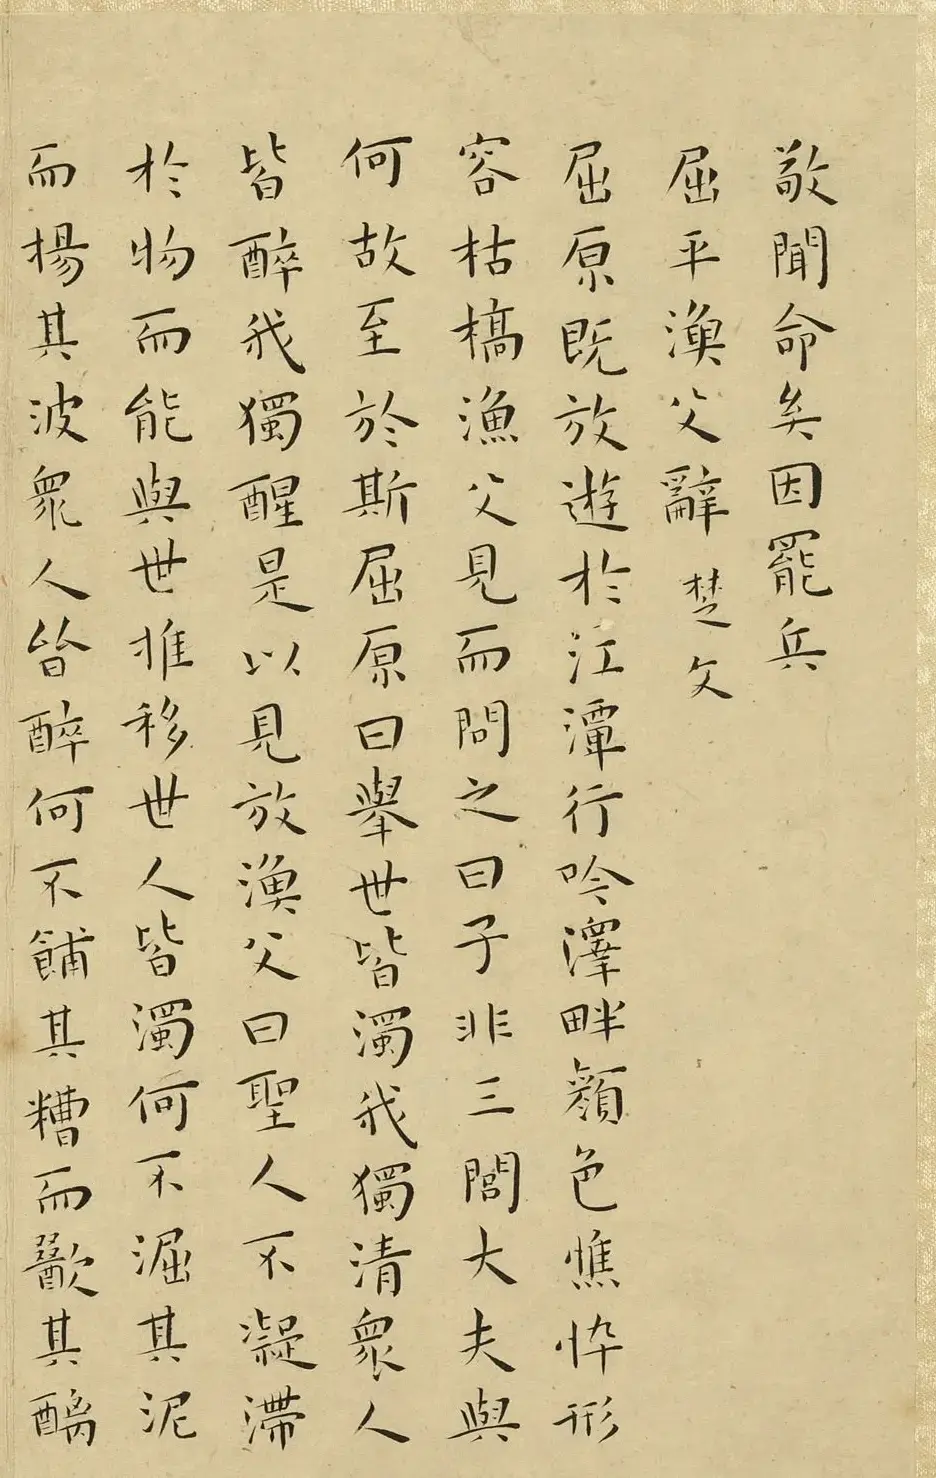 敬聞命矣因罷兵
屈平漁父辭 楚文
屈原既放遊於江潭行吟澤畔顏色憔悴形
容枯槁漁父見而問之曰子非三閭大夫與
何故至於斯屈原曰舉世皆濁我獨清衆人
皆醉我獨醒是以見放漁父曰聖人不凝滯
於物而能與世推移世人皆濁何不淈其泥
而揚其波衆人皆醉何不餔其糟而歠其醨